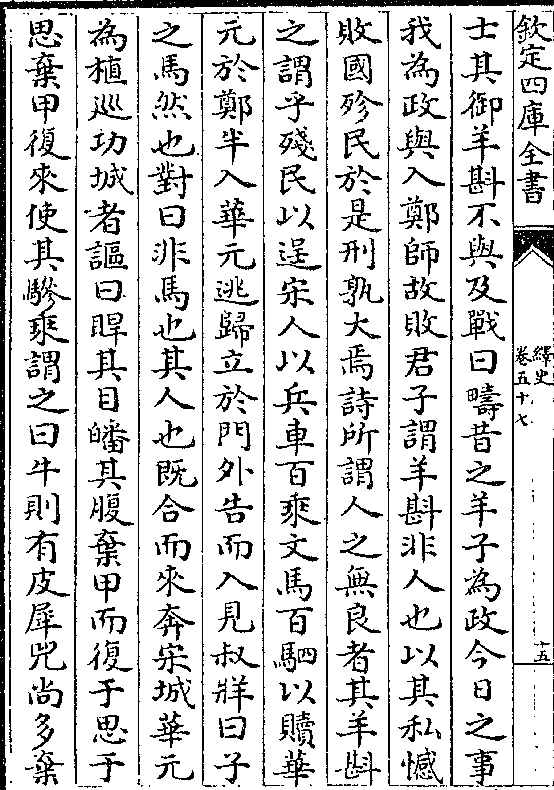 欽定四庫全書
繹史
卷五十七
十五
士其御羊斟不與及戰曰疇昔之羊子為政今日之事
我為政與入鄭師故敗君子謂羊斟非人也以其私憾
敗國殄民於是刑孰大焉詩所謂人之無良者其羊斟
之謂乎殘民以逞宋人以兵車百乘文馬百駟以贖華
元於鄭半入華元逃歸立於門外告而入見叔牂曰子
之馬然也對曰非馬也其人也既合而來奔宋城華元
為植巡功城者謳曰睅其目皤其腹棄甲而復于思于
思棄甲復來使其驂乘謂之曰牛則有皮犀兕尚多棄